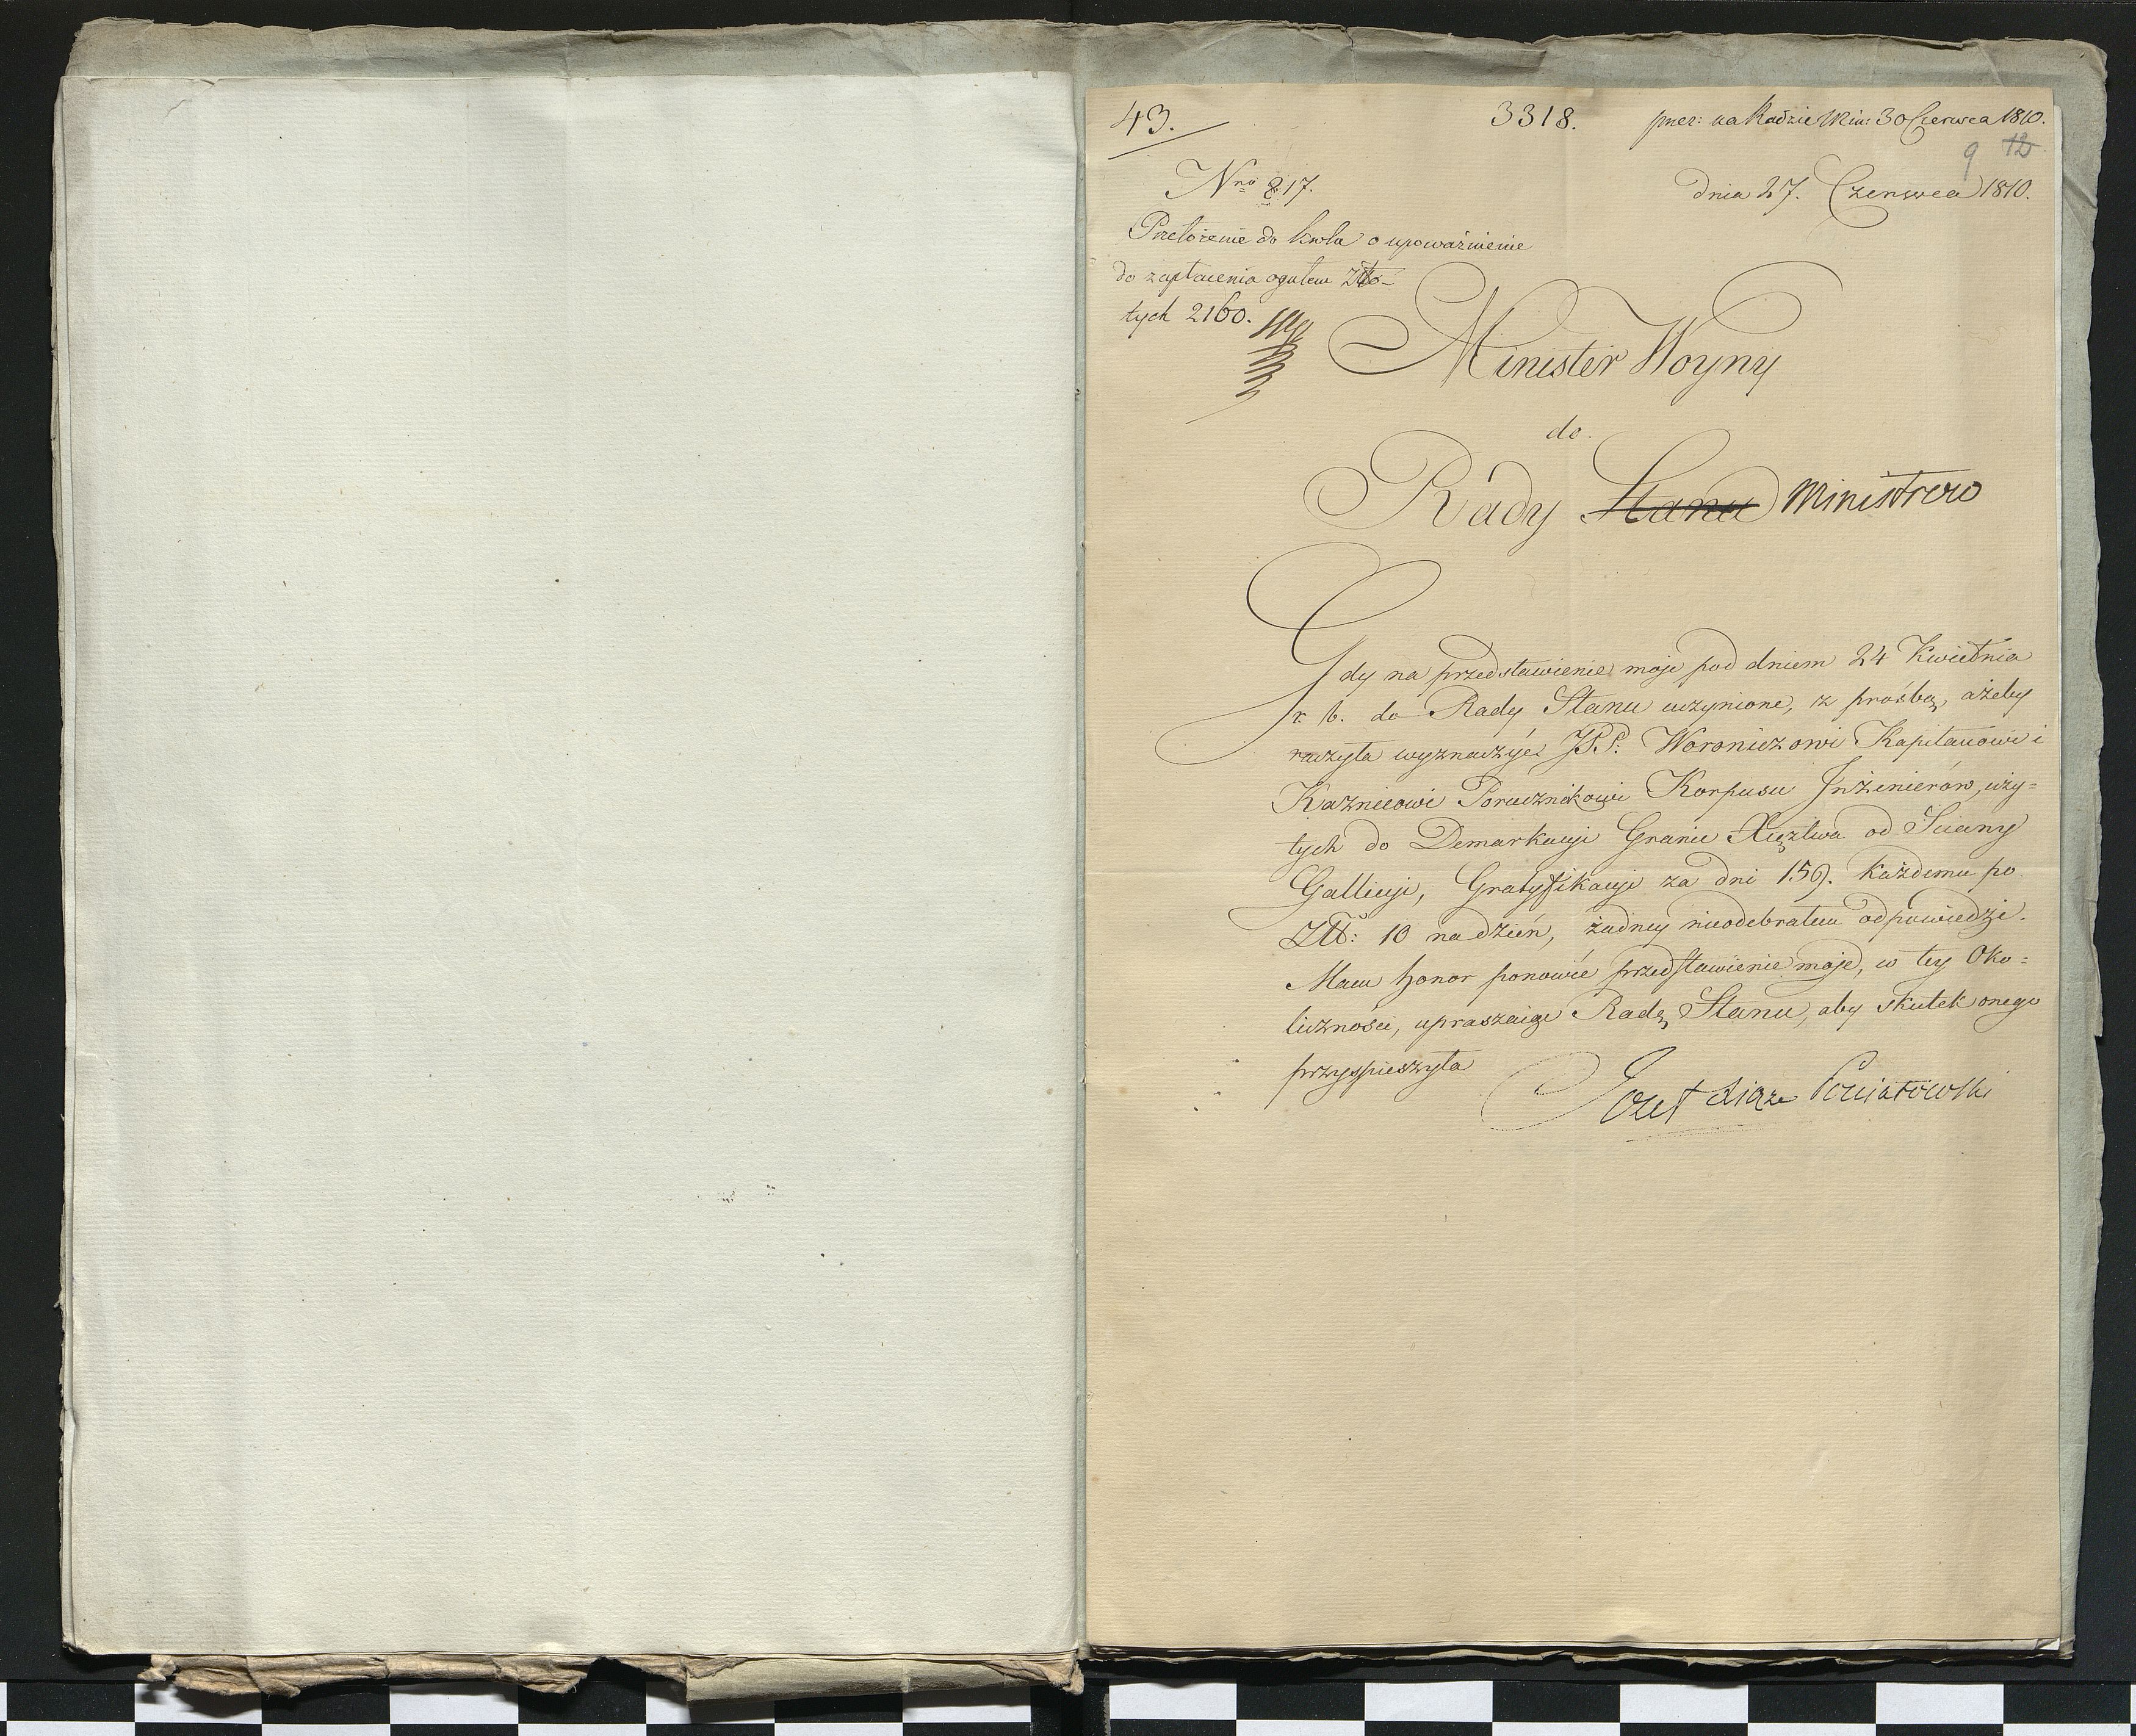 43.
3318.
prez: na Radzie Min: 30 Czerwca 1810.
9 12
Nro 817.
dnia 27. Czerwca 1810.
Przełożenie do Króla o upoważnienie
do zapłacenia ogułem Zło-
tych 2160.
Minister Woyny
do.
Rady Stanu Ministrow
Gdy na przedstawienie moje pod dniem 24 Kwietnia
r. b. do Rady Stanu uczynione, z prośbą, ażeby
raczyła wyznaczyć JPP: Woroniczowi Kapitanowi i
Kaznicowi Porucznikowi Korpusu Inżinierów, uży=
tych do Demarkacyi Granic Xięztwa od Sciany
Gallicyi, Gratyfikacyi za dni 159. każdemu po
Złł: 10 na dzień, żadney nieodebrałem odpowiedzi.
Mam honor ponowić przedstawienie moje, w tey Oko=
liczności, upraszaiąc Radę Stanu, aby skutek onego
przyspieszyła
Jozef Xiąze Poniatowski